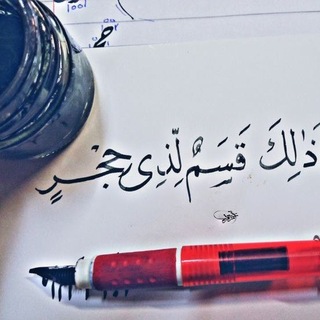 ذَٰلِكَ قَسَمٌ لِّذِى حِجْرٍ